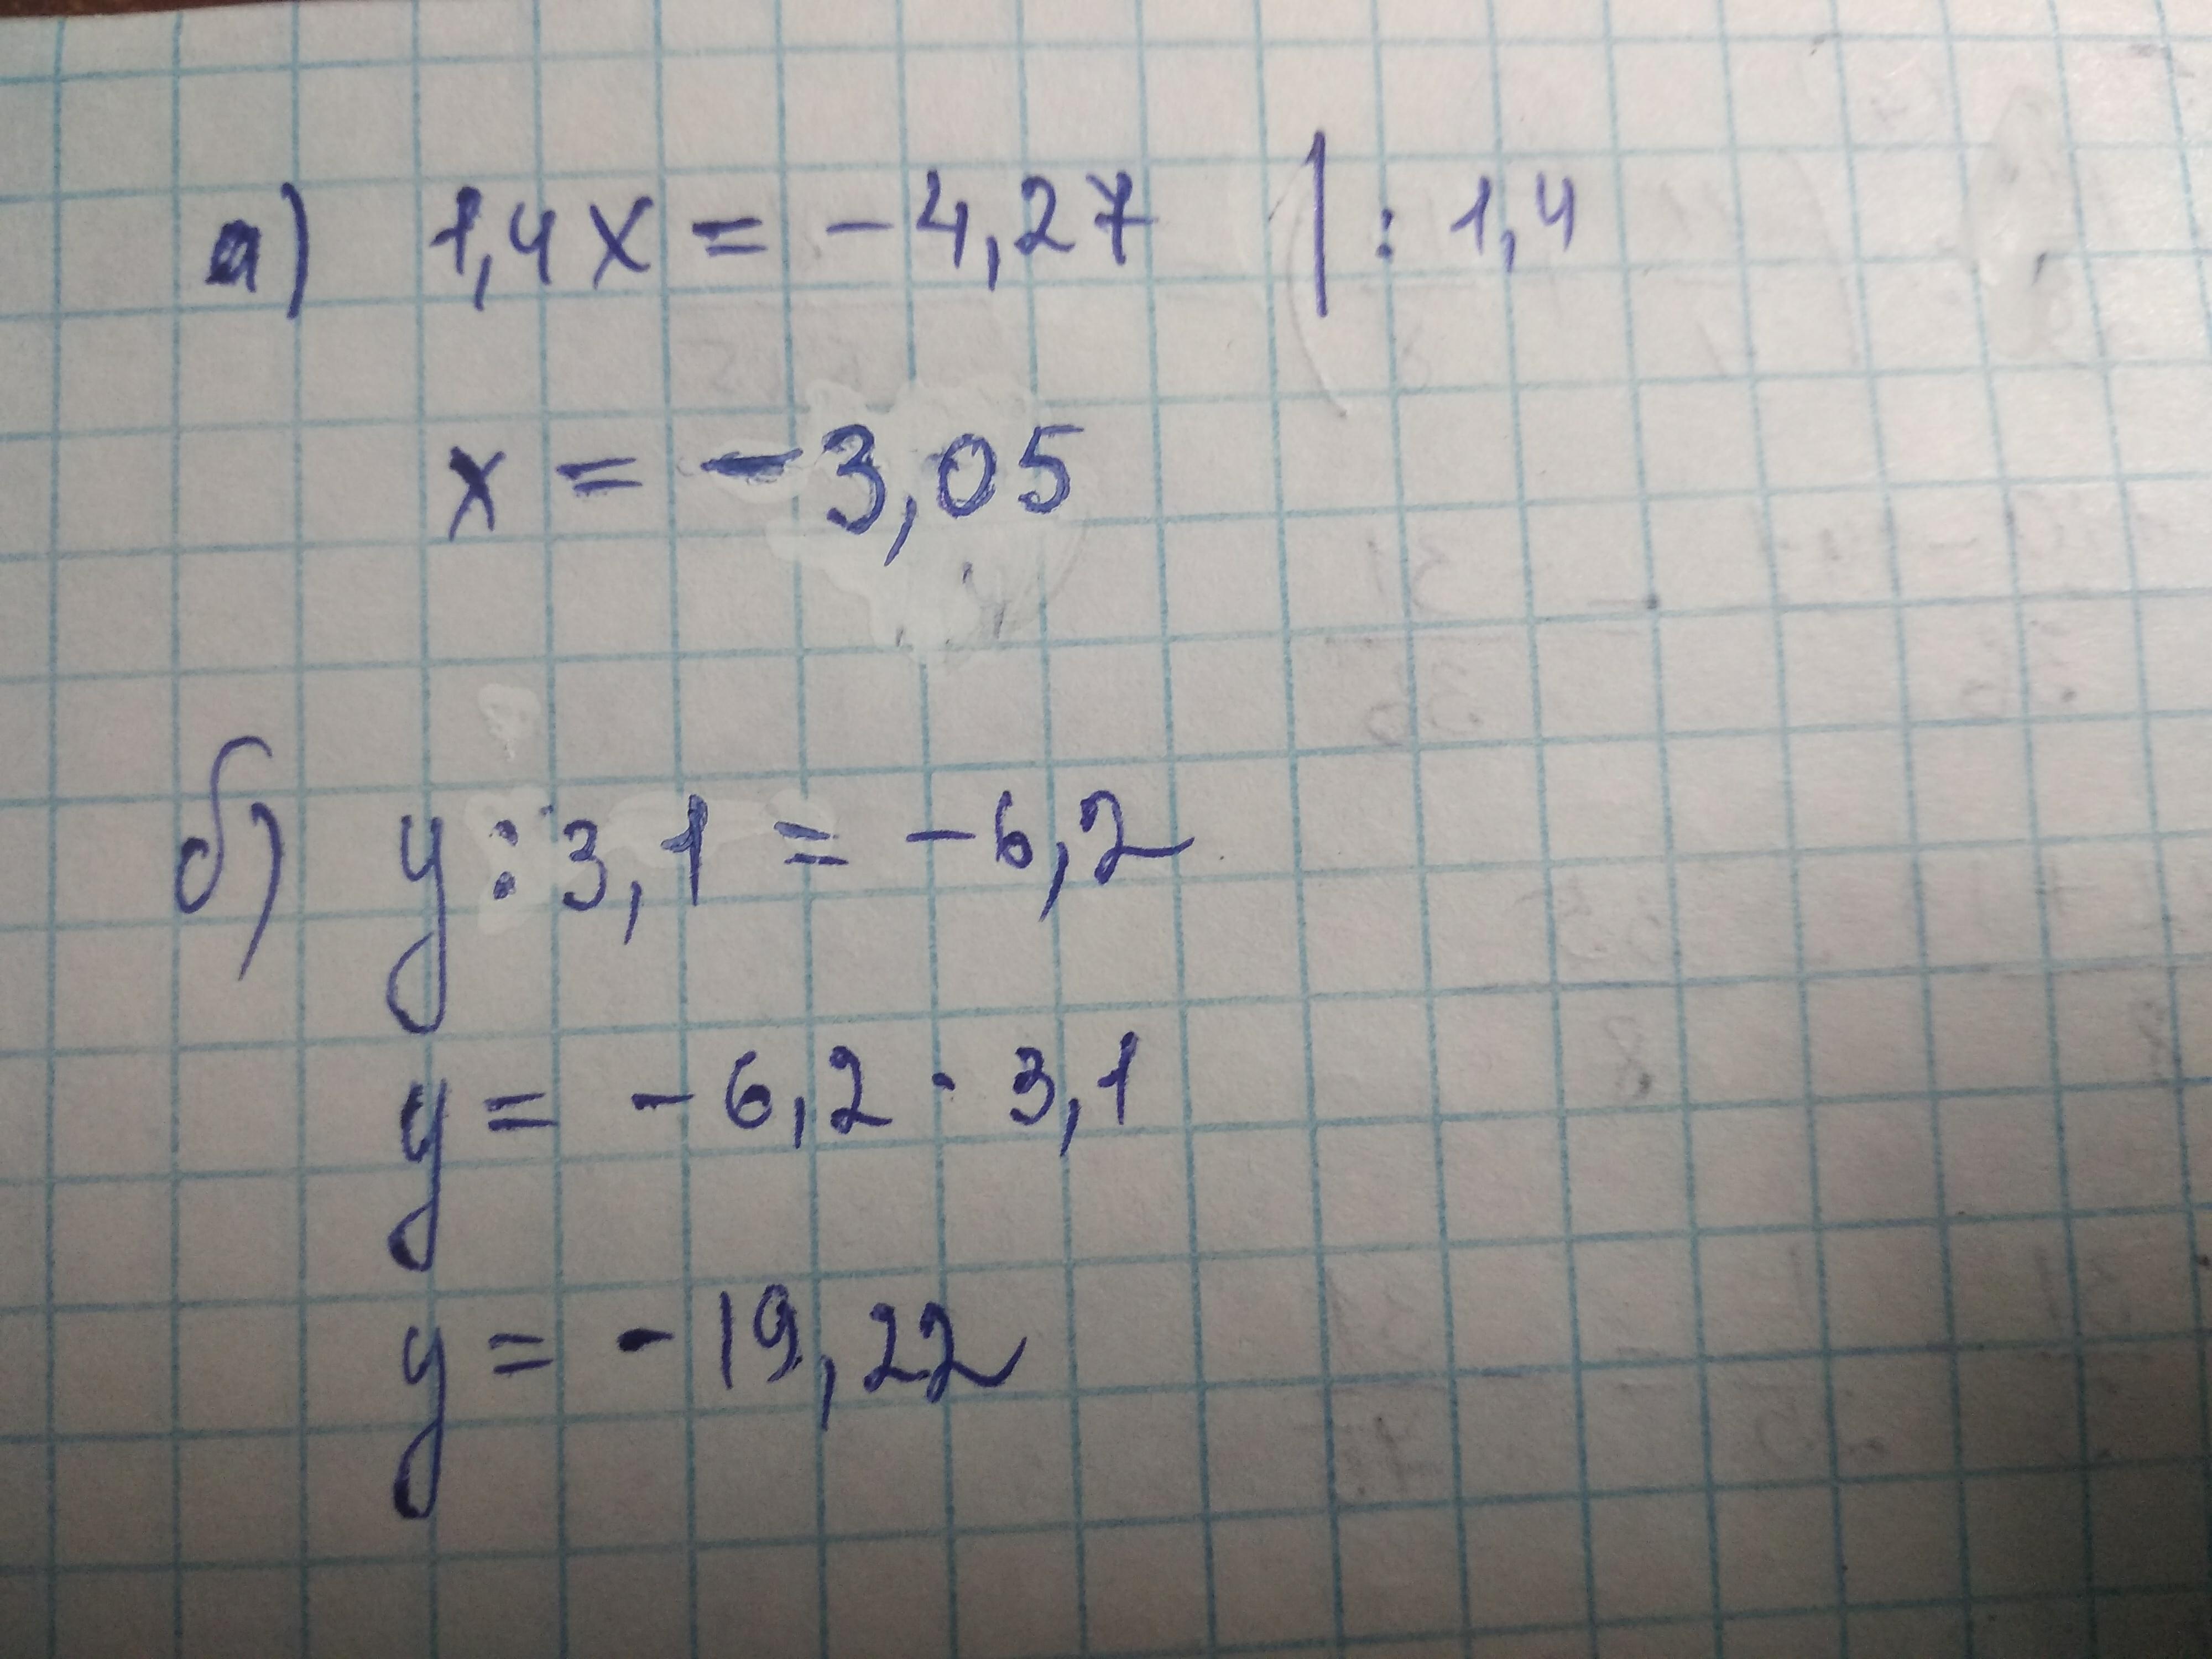 а) 1,4x = -4,27 | : 1,4
x = -3,05
б) y : 3,1 = -6,2
y = -6,2 · 3,1
y = -19,22